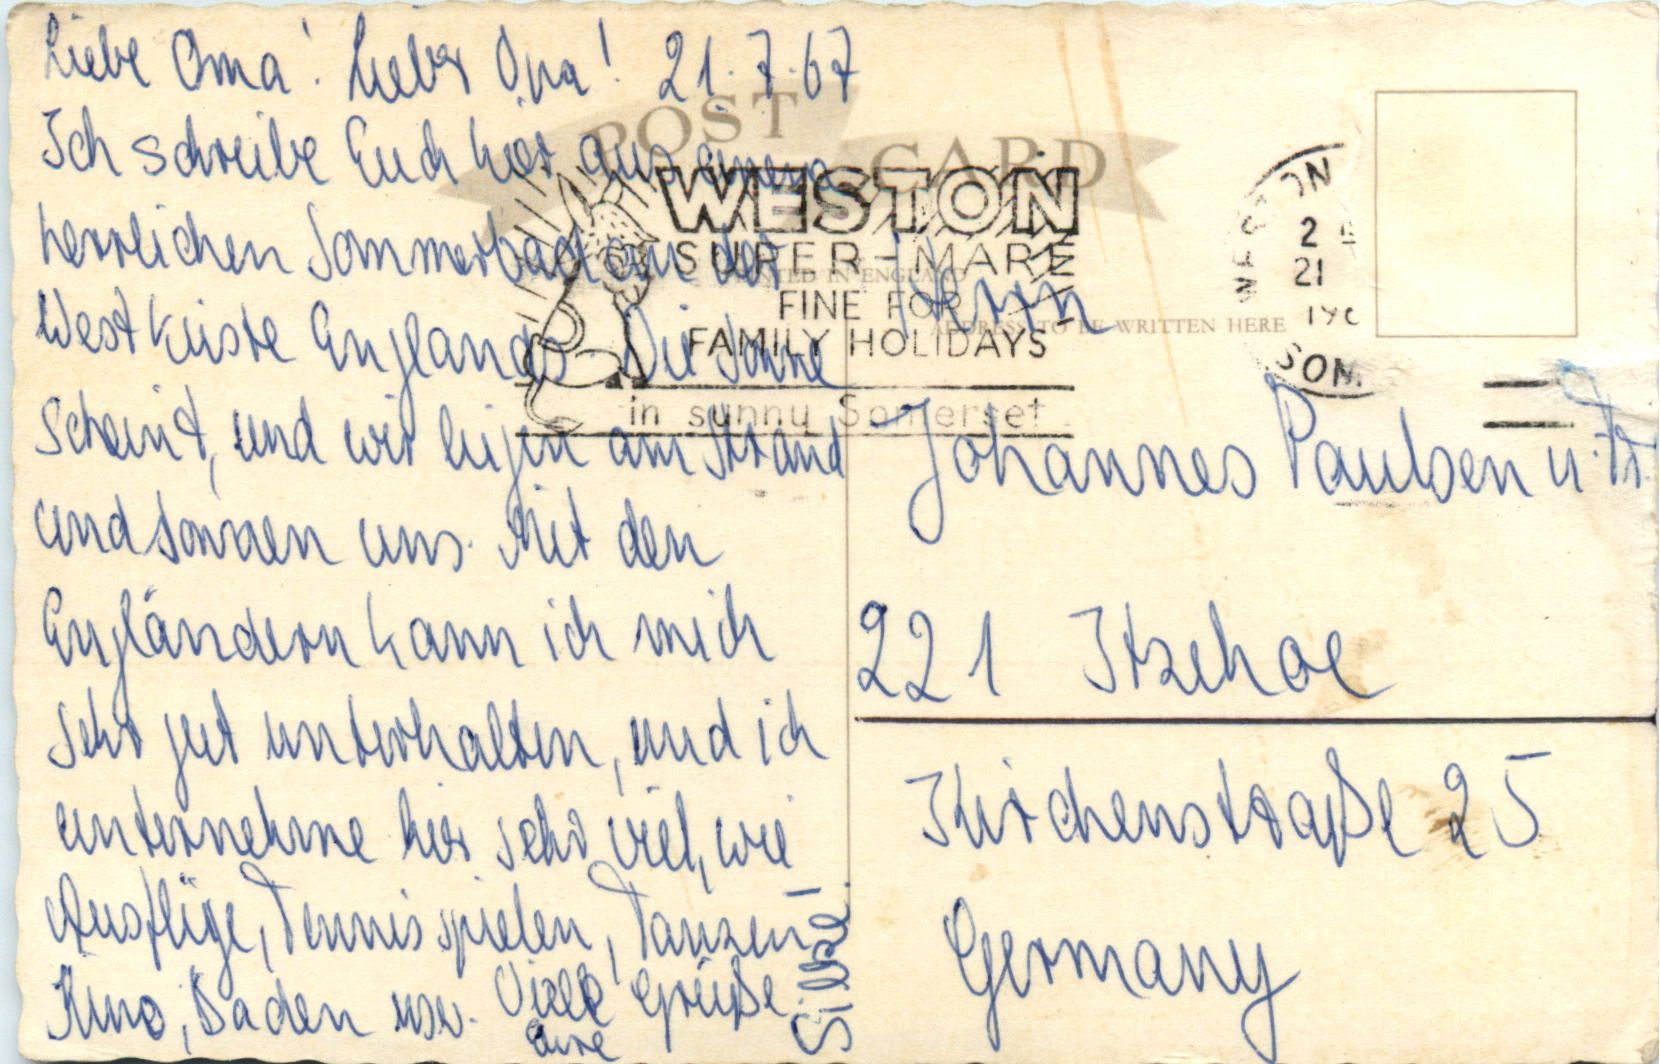 Liebe Oma! Lieber Opa! 21.7.67
Ich schreibe Euch hier aus einem
herrlichen Sommerbad an der
Westküste Englands. Die Sonne
scheint, und wir liegen am Strand
und sonnen uns. Mit den
Engländern kann ich mich
sehr gut unterhalten, und ich
unternehme hier sehr viel, wie
Ausflüge, Tennis spielen, Tanzen,
Kino, Baden usw. Viele Grüße
Eure
Silke!
POST CARD
PRINTED IN ENGLAND
ADDRESS TO BE WRITTEN HERE
WESTON
SUPER-MARE
FINE FOR
FAMILY HOLIDAYS
in sunny Somerset
WESTON
21
196
SOM.
Herrn
Johannes Paulsen u. Fr.
221 Itzehoe
Kirchenstraße 25
Germany